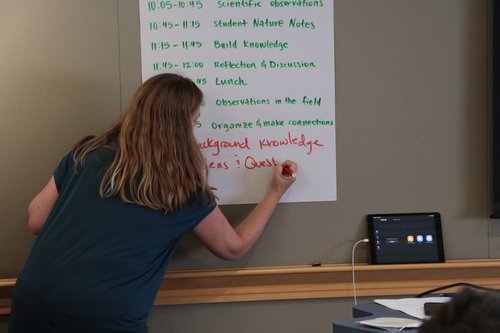 10:05-10:45 Scientific observations
10:45-11:15 Student Nature Notes
11:15-11:45 Build Knowledge
11:45-12:00 Reflection & Discussion
45 Lunch
Observations in the field
5 Organize & make connections
ackground Knowledge
eas & Quest